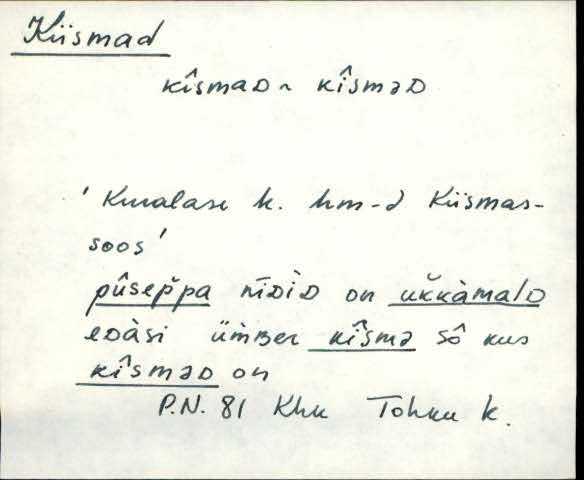 Kiismad
kîsmaD ~ kîsməD
' Kuralase k. hm-d Kiismas-
soos'
pûsep̆pa nīDìD on uk̆kàmalD
eDàsi üm̀ʙer kîsmə sô kus
kîsməD on
P.N. 81 Khk Tohku k.